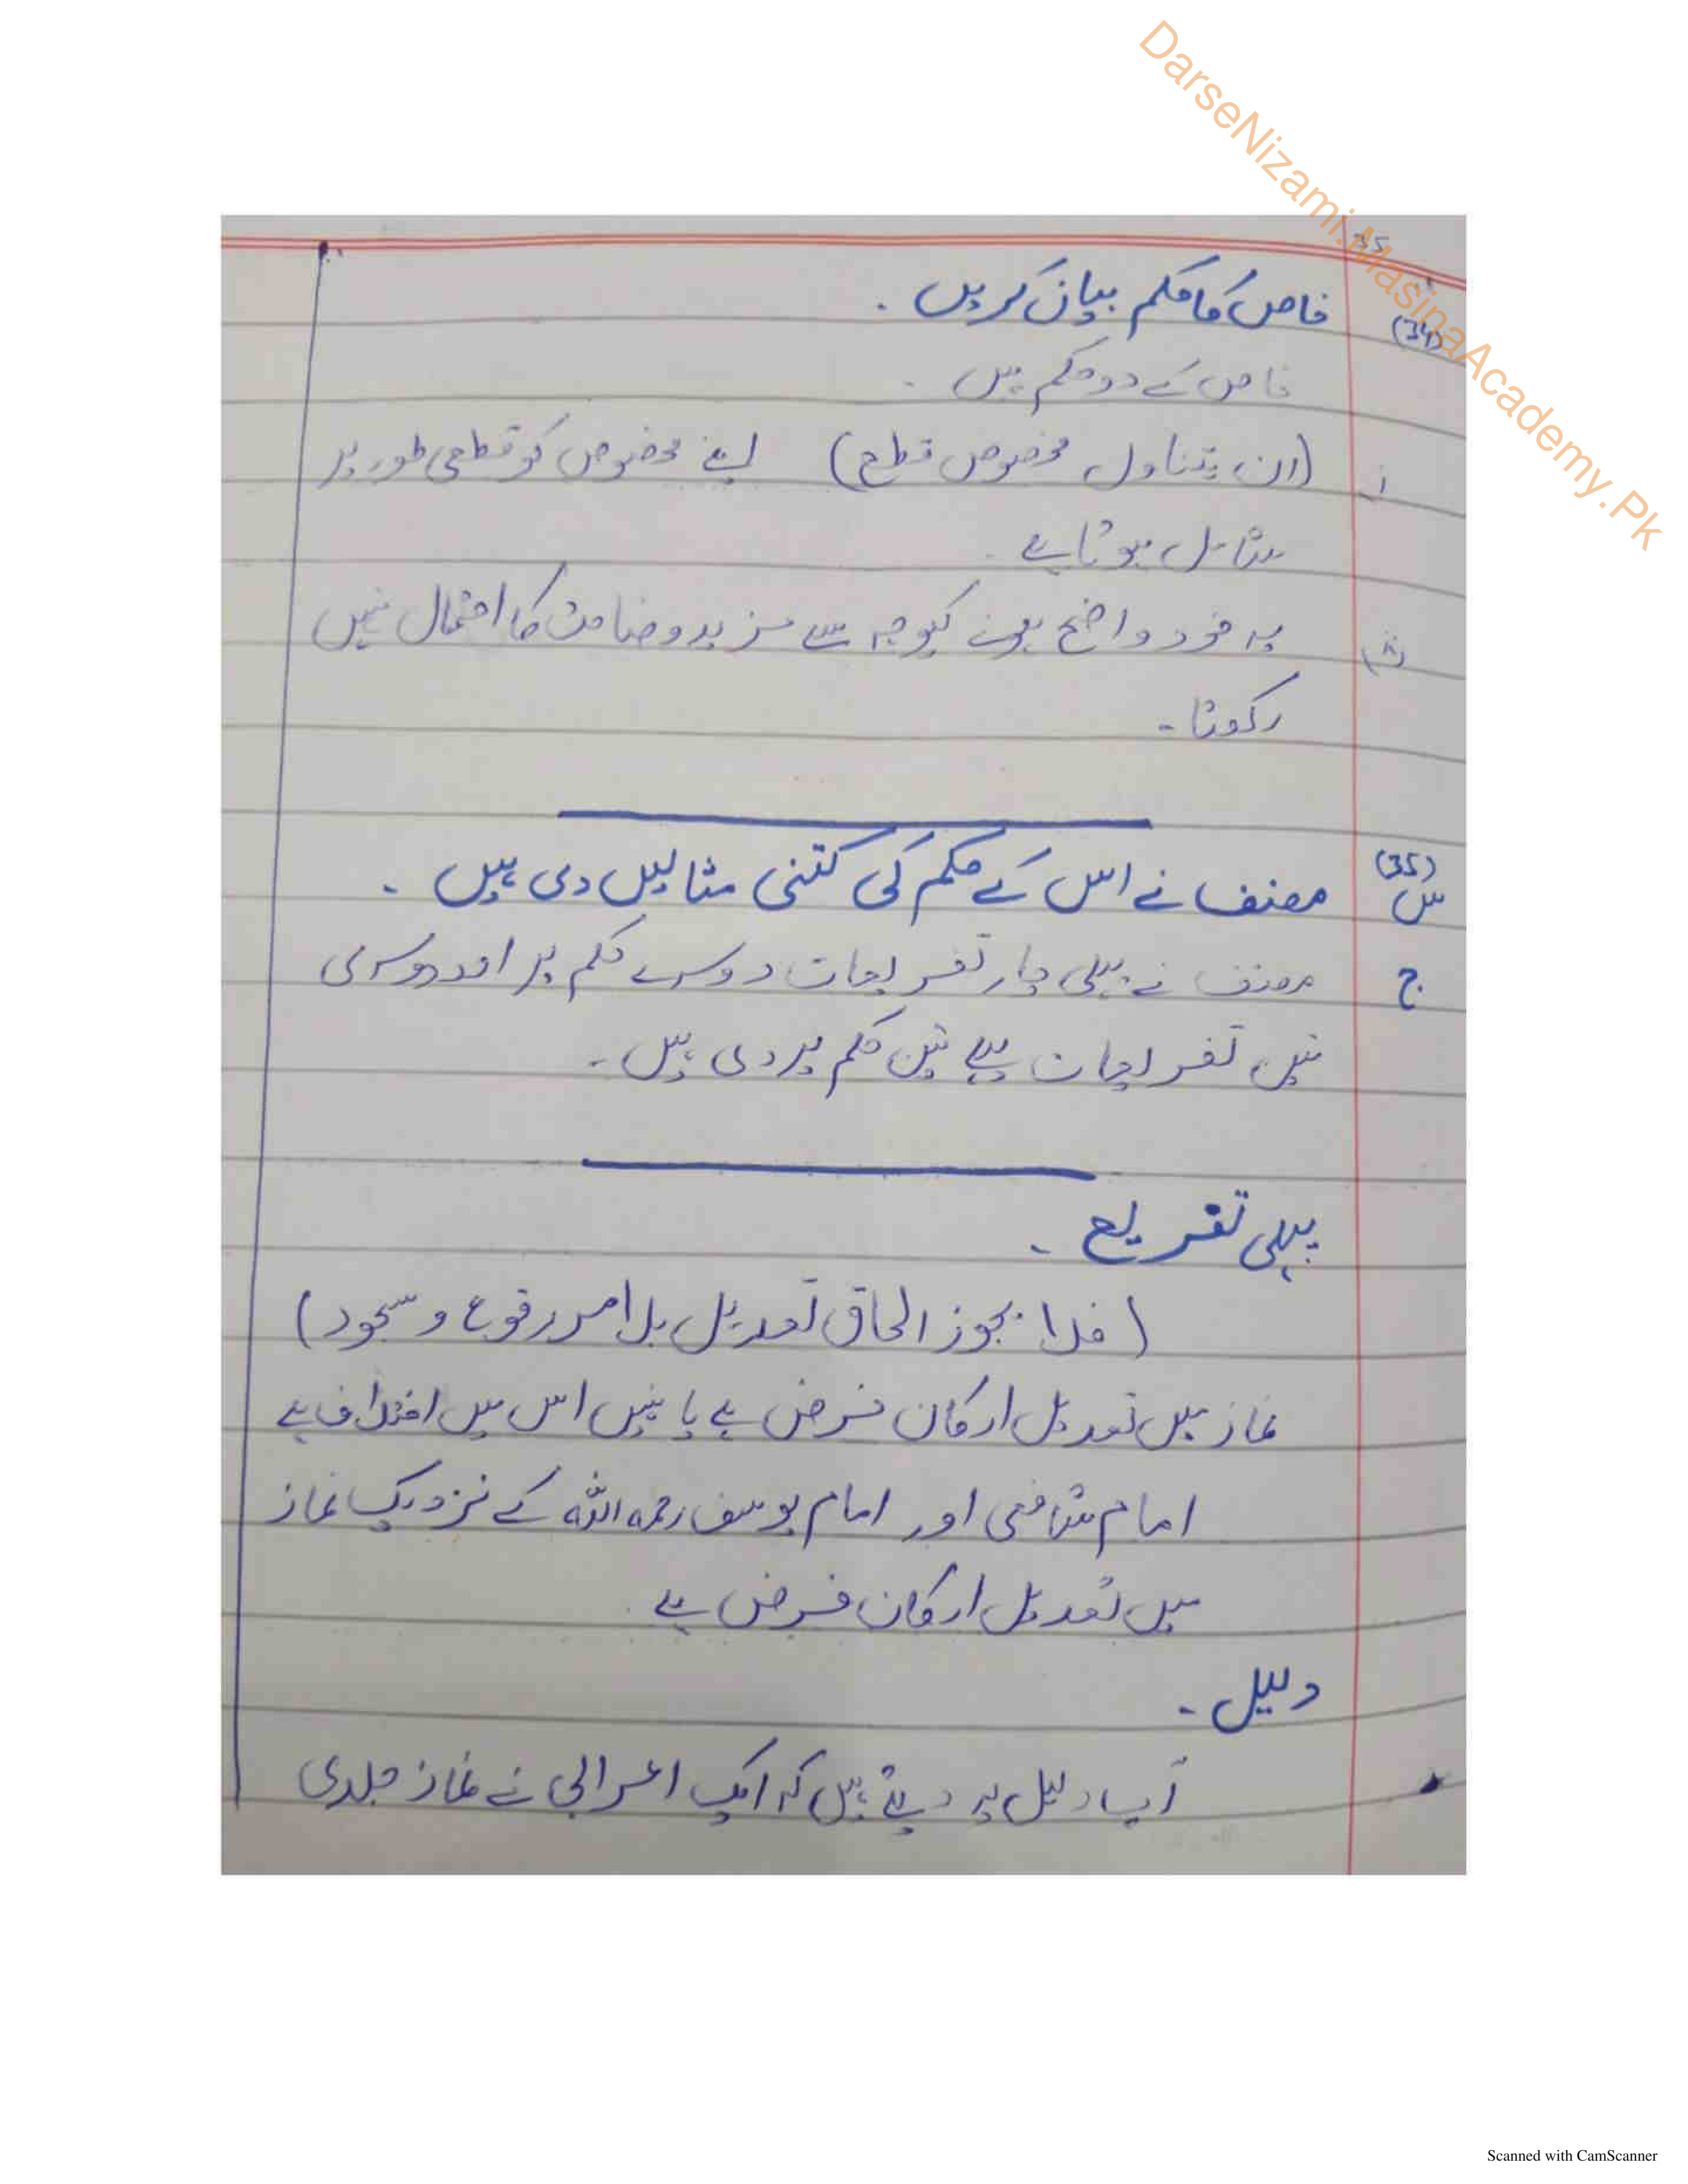 DarseNizami.MasinaAcademy.Pk
35
(34) خاص کا حکم بیان کریں ۔
خاص کے دو حکم ہیں ۔
(ان یتناول مخصوص قطع) اپنے مخصوص کو قطعی طور پر
شامل ہوتا ہے ۔
یہ خود واضح ہونے کیوجہ سے مزید وضاحت کا احتمال نہیں
رکھتا ۔
(35)
س مصنف نے اس کے حکم کی کتنی مثالیں دی ہیں ۔
ج مصنف نے پہلی چار تفریعات دوسرے حکم پر اور دوسری
تین تفریعات پہلے تین حکم پر دی ہیں ۔
پہلی تفریع ۔
(فلا یجوز الحاق تعدیل بلا امر رقوع و سجود)
نماز میں تعدیل ارکان فرض ہے یا نہیں اس میں اختلاف ہے
امام شافعی اور امام یوسف رحمہ اللہ کے نزدیک نماز
میں تعدیل ارکان فرض ہے
دلیل ۔
آپ دلیل یہ دیتے ہیں کہ ایک اعرابی نے نماز جلدی
Scanned with CamScanner